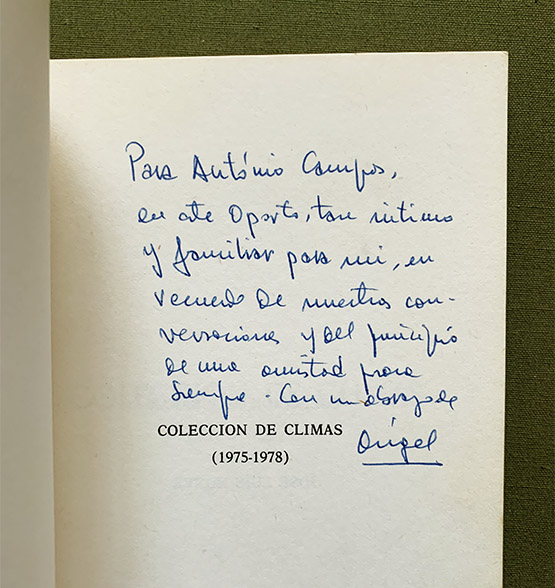 Para António Campos,
en este Oporto, tan íntimo
y familiar para mí, en
recuerdo de nuestras con-
versaciones y del principio
de una amistad para
siempre - Con un abrazo de
COLECCION DE CLIMAS
Ángel
(1975-1978)